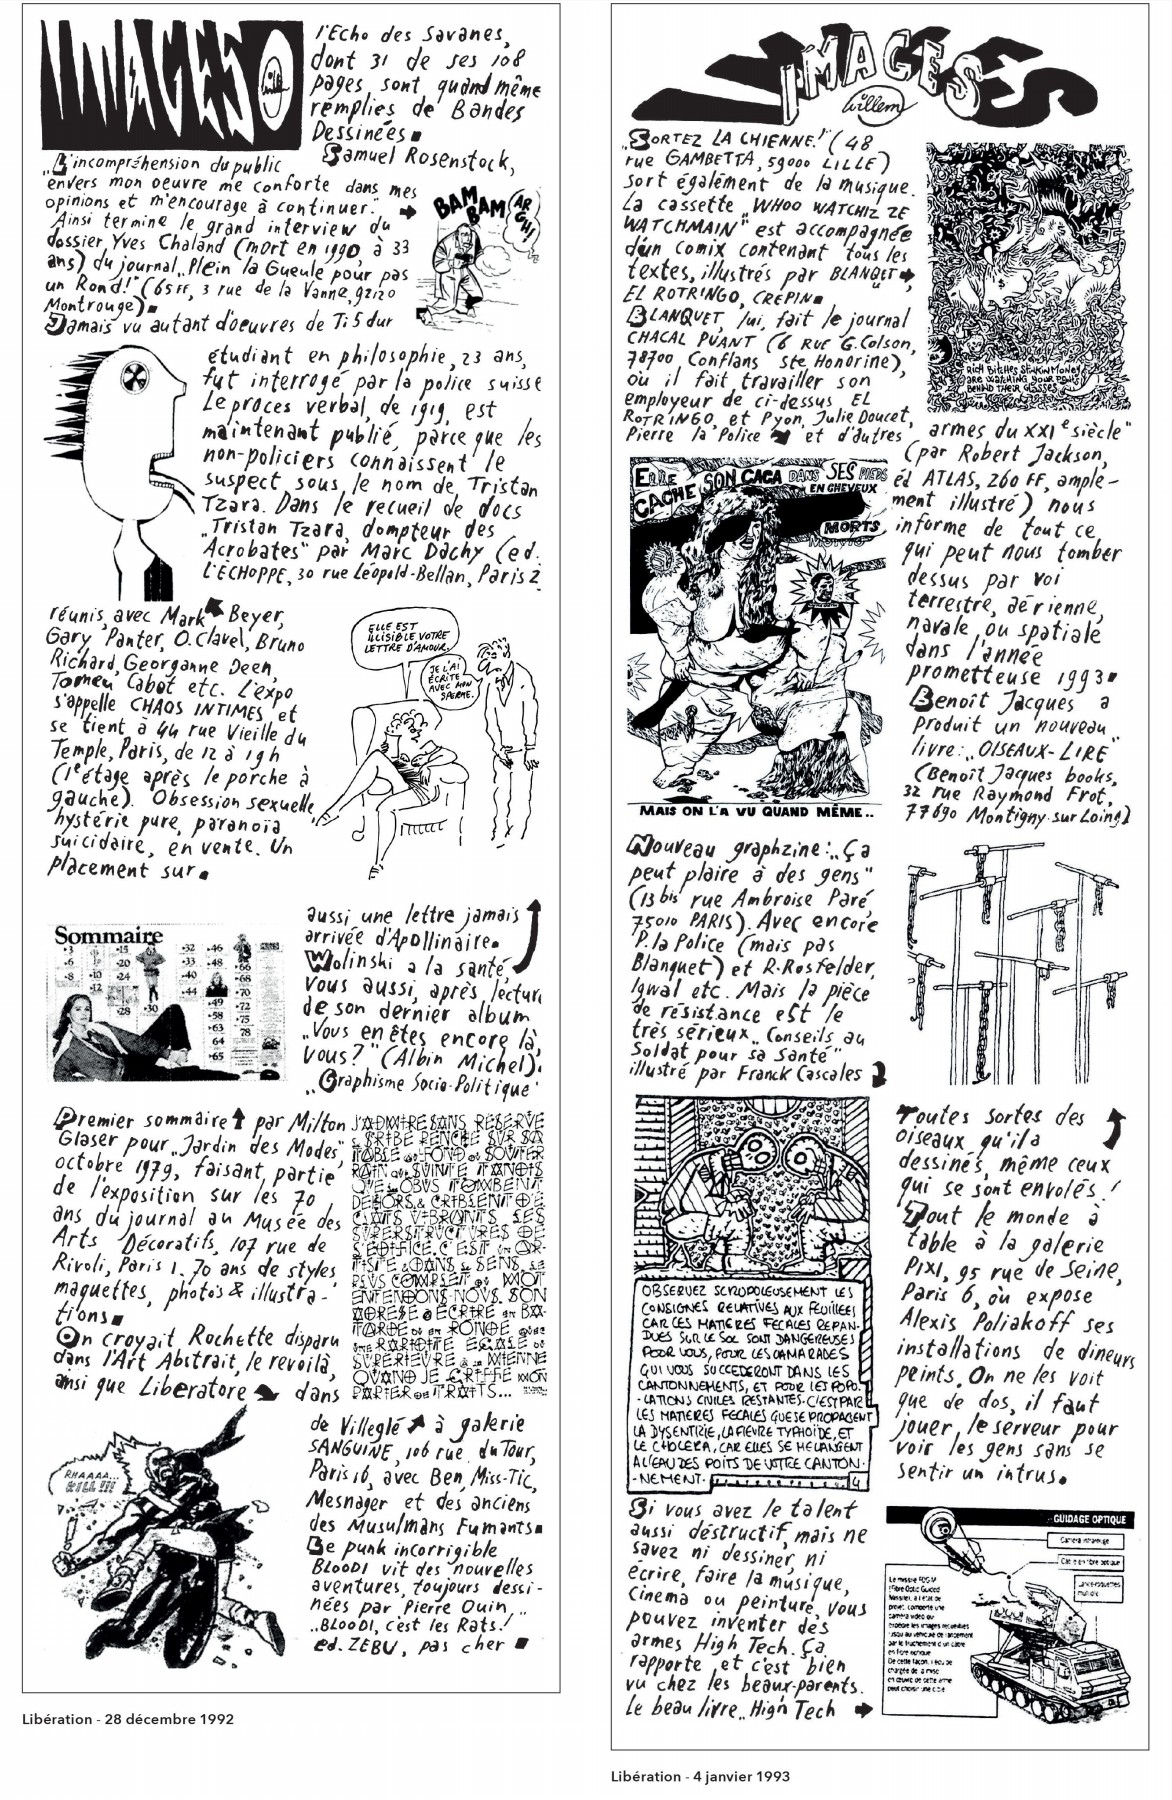 IMAGES
Willem
l'Echo des Savanes,
dont 31 de ses 108
pages sont quand même
remplies de Bandes
Dessinées.
Samuel Rosenstock,
„L'incompréhension du public
envers mon oeuvre me conforte dans mes
opinions et m'encourage à continuer."
Ainsi termine le grand interview du
dossier Yves Chaland (mort en 1990, à 33
ans) du journal „Plein la Gueule pour pas
un Rond!" (65 FF, 3 rue de la Vanne, 92120
Montrouge).
Jamais vu autant d'oeuvres de Ti5 dur
BAM
BAM
AR
GH!
étudiant en philosophie, 23 ans,
fut interrogé par la police suisse
Le procès verbal, de 1919, est
maintenant publié, parce que les
non-policiers connaissent le
suspect sous le nom de Tristan
Tzara. Dans le recueil de docs
„Tristan Tzara, dompteur des
Acrobates" par Marc Dachy (ed.
L'ÉCHOPPE, 30 rue Léopold-Bellan, Paris 2
réunis, avec Mark Beyer,
Gary Panter, O. Clavel, Bruno
Richard, Georganne Deen,
Tomeu Cabot etc. L'expo
s'appelle CHAOS INTIMES et
se tient à 44 rue Vieille du
Temple, Paris, de 12 à 19h
(1e étage après le porche à
gauche). Obsession sexuelle,
hystérie pure, paranoïa
suicidaire, en vente. Un
placement sur.
ELLE EST
ILLISIBLE VOTRE
LETTRE D'AMOUR.
JE L'AI
ÉCRITE
AVEC MON
SPERME.
aussi une lettre jamais
arrivée d'Apollinaire.
Wolinski a la santé,
Vous aussi, après lecture
de son dernier album
„Vous en êtes encore là,
vous?" (Albin Michel).
„Graphisme Socio-Politique"
Sommaire
Premier sommaire par Milton
Glaser pour „Jardin des Modes",
octobre 1979, faisant partie
de l'exposition sur les 70
ans du journal au Musée des
Arts Décoratifs, 107 rue de
Rivoli, Paris 1. 70 ans de styles,
maquettes, photos & illustra-
tions.
On croyait Rochette disparu
dans l'Art Abstrait, le revoilà,
ainsi que Liberatore dans
J'ADMIRE SANS RÉSERVE
DEHORS & CRIBLENT DE
ÉCLATS VIBRANTS LES
SUPERSTRUCTURES DE
L'ÉDIFICE. C'EST UN AR-
TISTE DANS LE SENS LE
PLUS COMPLET DU MOT
ENTENDONS-NOUS. SON
ADRESSE À ÉCRIRE EN BA-
TARDE OU EN RONDE
SUPÉRIEURE À LA MIENNE
QUAND JE GRIFFE MON
PAPIER DE TRAITS...
RHAAAA...
KILL!!!
de Villeglé à galerie
SANGUINE, 106 rue du Tour,
Paris 16, avec Ben, Miss-Tic,
Mesnager et des anciens
des Musulmans Fumants.
Le punk incorrigible
BLOODI vit des nouvelles
aventures, toujours dessi-
nées par Pierre Ouin „
„BLOODI, c'est les Rats!"
ed. ZEBU, pas cher
Libération - 28 décembre 1992
IMAGES
Willem
„SORTEZ LA CHIENNE!" (48
rue GAMBETTA, 59000 LILLE)
sort également de la musique.
La cassette „WHOO WATCHIZ ZE
WATCHMAIN" est accompagnée
d'un comix contenant tous les
textes, illustrés par BLANQUET
EL ROTRINGO, CREPIN.
BLANQUET, lui, fait le journal
CHACAL PUANT (6 RUE G. Colson,
78700 Conflans Ste Honorine),
où il fait travailler son
employeur de ci-dessus EL
ROTRINGO, et Pyon, Julie Doucet,
Pierre la Police et d'autres
RICH BITCHES STINKIN MONEY
ARE WATCHING YOUR
BEHIND THEIR GLASSES
armes du XXIe siècle"
(par Robert Jackson,
éd ATLAS, 260 FF, ample-
ment illustré) nous
informe de tout ce
qui peut nous tomber
dessus par voi
terrestre, aérienne,
navale ou spatiale
dans l'année
prometteuse 1993.
Benoît Jacques a
produit un nouveau
livre: „OISEAUX-LIRE"
(Benoît Jacques books,
32 rue Raymond Frot,
77690 Montigny-sur Loing)
ELLE
CACHE SON CACA DANS SES PIEDS
EN CHEVEUX
MORTS
MAIS ON L'A VU QUAND MÊME..
Nouveau graphzine: „Ça
peut plaire à des gens"
(13 bis rue Ambroise Paré,
75010 PARIS). Avec encore
P. la Police (mais pas
Blanquet) et R. Rosfelder,
Igwal etc. Mais la pièce
de résistance est le
très sérieux „Conseils au
Soldat pour sa Santé"
illustré par Franck Cascales
OBSERVEZ SCRUPULEUSEMENT LES
CONSIGNES RELATIVES AUX FEUILLÉES
CAR LES MATIERES FECALES REPAN-
DUES SUR LE SOL SONT DANGEREUSES
POUR VOUS, POUR LES CAMARADES
QUI VOUS SUCCEDERONT DANS LES
CANTONNEMENTS, ET POUR LES POPU-
-LATIONS CIVILES RESTANTES. C'EST PAR
LES MATIERES FECALES QUE SE PROPAGENT
LA DYSENTRIE, LA FIEVRE TYPHOÏDE, ET
LE CHOLERA, CAR ELLES SE MELANGENT
A L'EAU DES POITS DE VOTRE CANTON-
-NEMENT.
4
Toutes sortes des
oiseaux qu'il a
dessinés, même ceux
qui se sont envolés!
Tout le monde à
table à la galerie
PIXI, 95 rue de Seine,
Paris 6, où expose
Alexis Poliakoff ses
installations de dineurs
peints. On ne les voit
que de dos, il faut
jouer le serveur pour
voir les gens sans se
sentir un intrus.
Si vous avez le talent
aussi déstructif, mais ne
savez ni dessiner, ni
écrire, faire la musique,
cinema ou peinture, vous
pouvez inventer des
armes High Tech. Ça
rapporte et c'est bien
vu chez les beaux-parents.
Le beau livre „High Tech
GUIDAGE OPTIQUE
Caméra infrarouge
Câble en fibre optique
Lance-roquettes
multiple
Le missile FOG-M
(Fibre Optic Guided
Missile), à l'état de
projet, comporte une
caméra vidéo qui
expédie les images recueillies
jusqu'au véhicule de lancement
par le truchement d'un câble
en fibre optique.
De cette façon, l'équipe
chargée de la mise
en œuvre de cette arme
peut choisir une cible
Libération - 4 janvier 1993